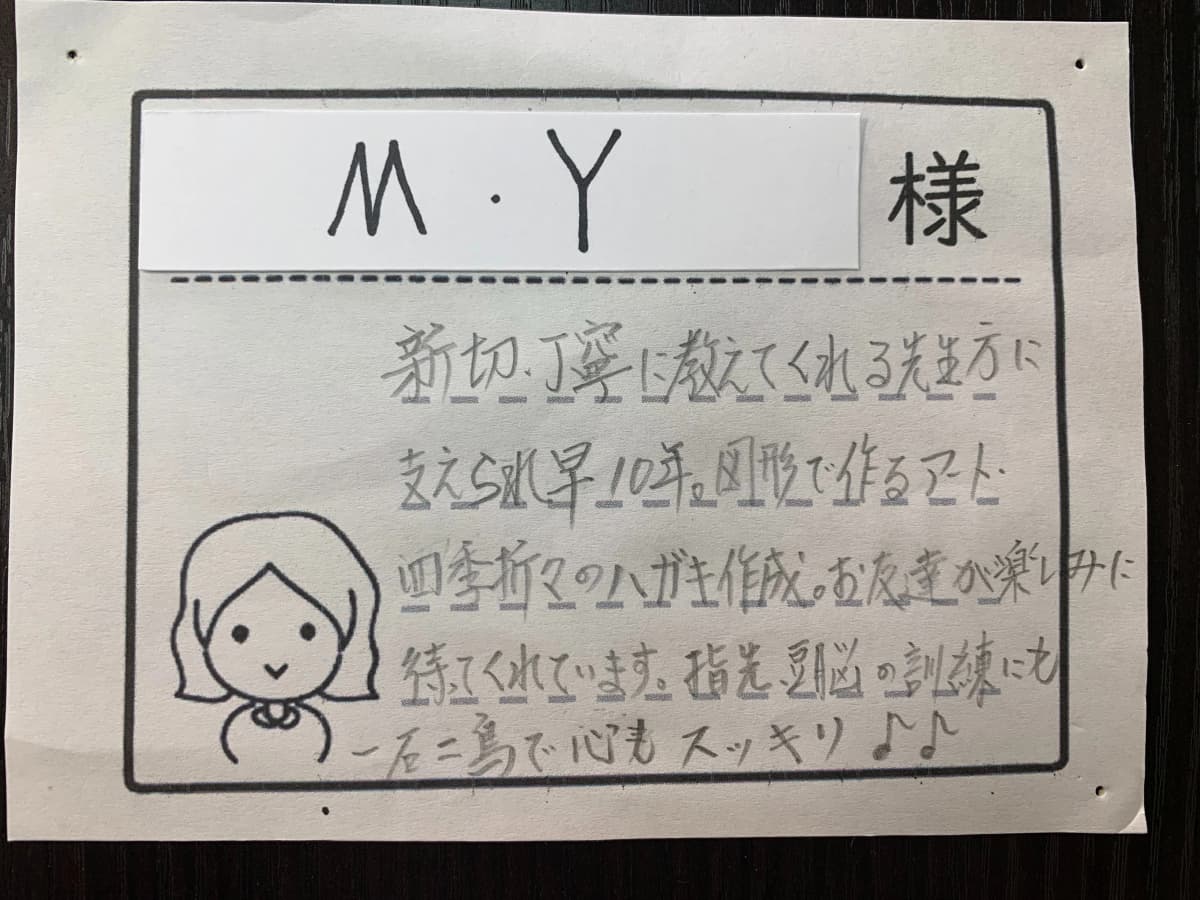 M・Y 様
新切、丁寧に教えてくれる先生方に
支えられ早10年。図形で作るアート・
四季折々のハガキ作成。お友達が楽しみに
待ってくれています。指先、豆脳の訓練にも
一石二鳥で心もスッキリ♪♪